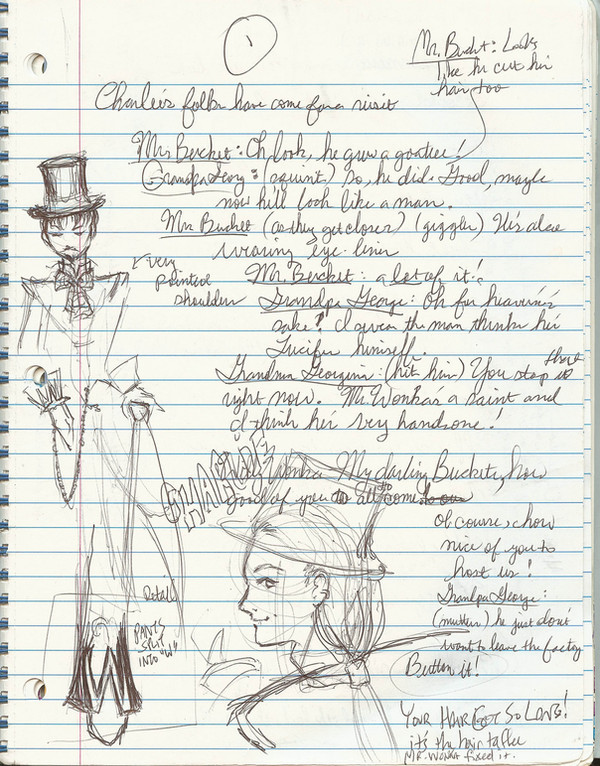 1
Mr. Bucket: Looks
like he cut his
hair too
Charlie's folks have come for a visit
Mrs Bucket: Oh look, he grew a goatee!
Grandpa George: (squint) So, he did. Good, maybe
now he'll look like a man.
Mrs Bucket (as they get closer) (giggles) He's also
wearing eye-liner
very
pointed
shoulders
Mr. Bucket: a lot of it!
Grandpa George: Oh for heaven's
sake! I swear the man thinks he's
Lucifer himself.
Grandma Georgina: (hits him) You stop that
right now. Mr. Wonka's a saint and
I think he's very handsome!
Wonka My darling Buckets, how
good of you to all come
of course, how
nice of you to
host us!
Grandpa George:
(mutters) he just don't
want to leave the factory
Button it!
Detail
PANTS
SPLIT
INTO "W"
YOUR HAIR GOT SO LONG!
it's the hair taffee
MR. WONKA fixed it.